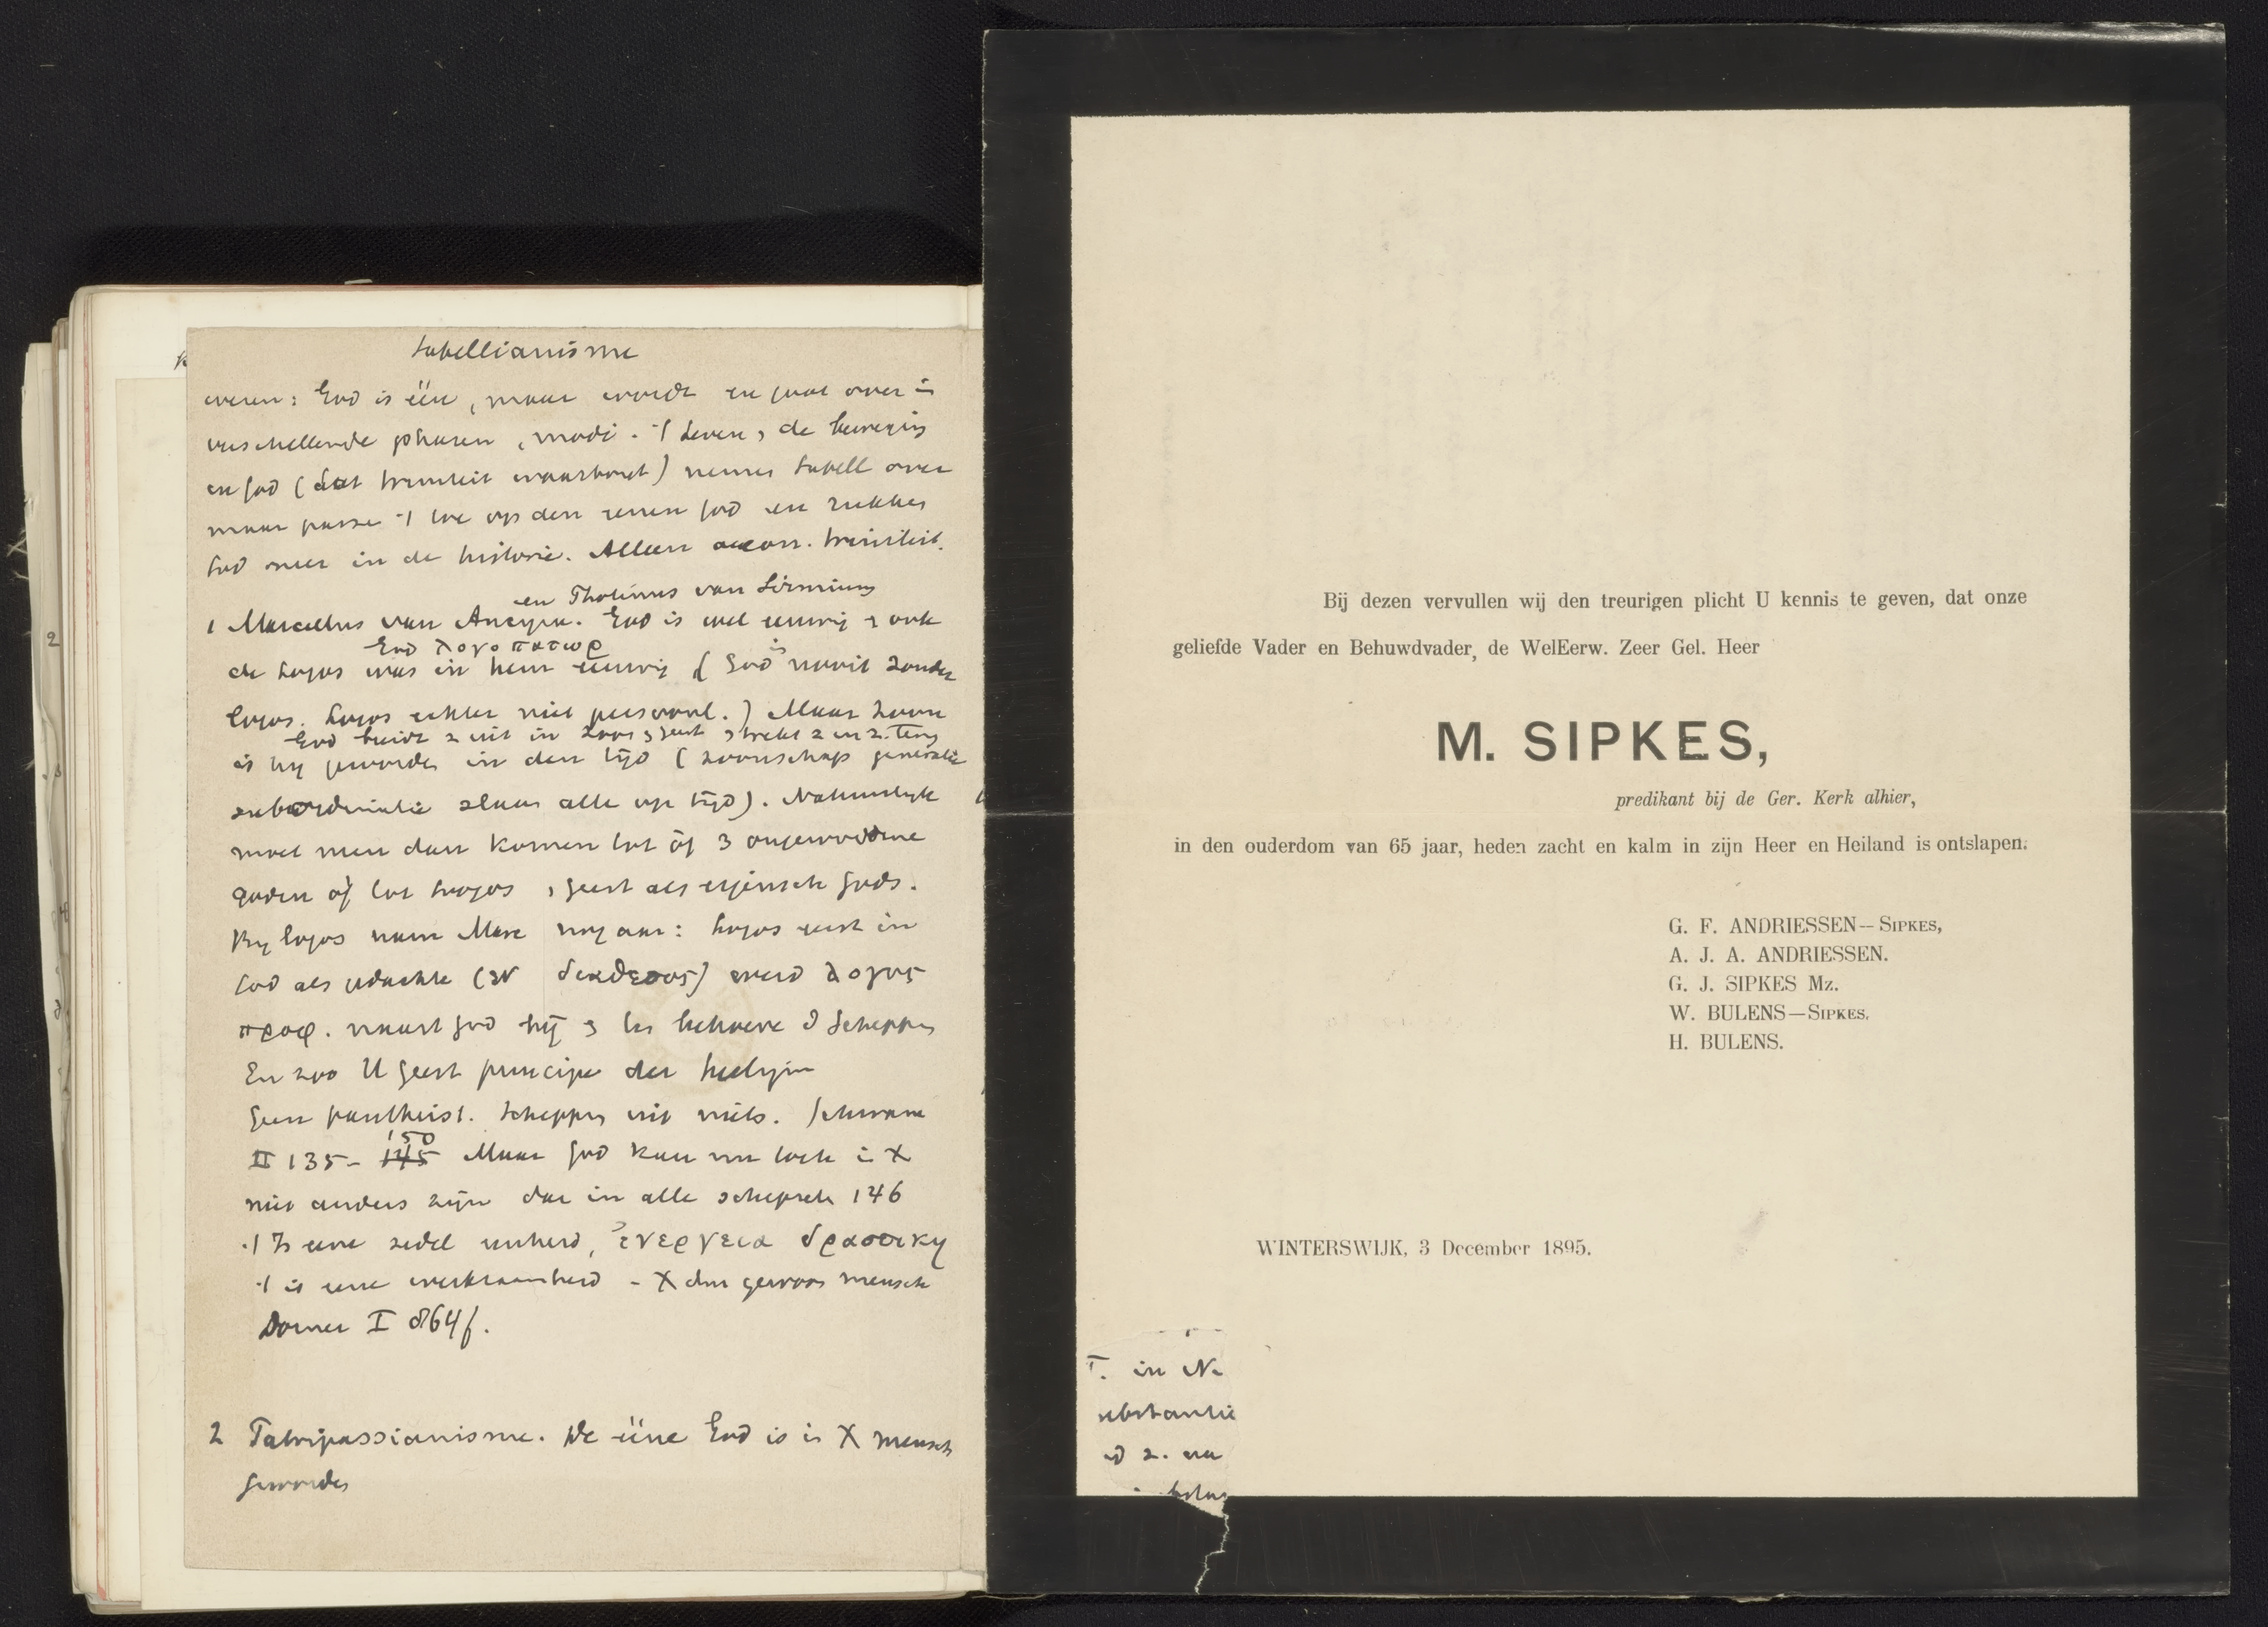 Sabellianisme
weren: God is één, maar wordt en gaat over in
verschillende phasen, modi. 't Leven, de beweging
in God (dat triniteit waarborgt) neemt Sabell over
maar passe 't toe op den eenen God en
God meer in de historie. Alleen oecon. triniteit.
en Photinus van Sirmium
1 Marcellus van Ancyra. God is wel eeuwig ook
God λογοπατωρ
de Logos was in hem eeuwig (God is nooit zonder
logos. Logos echter niet persoonl.) Maar Zoon
God breidt z uit in Zoon Geest, strekt z
is hij geworden in den tijd (zoonschap generatie
subordinatie slaan alle op tijd). Natuurlijk
moet men dan komen tot óf 3 ongewordene
goden óf tot Logos, geest als eigensch Gods.
By logos nam Marc nog aan: Logos eerst in
God als gedachte werd λογος
προφ. naast God hij ter behoeve d Schepping
En zoo H Geest principe der heiligin
Geen pantheist. Schepping uit niets. Schwane
150
II 135- 145 Maar God kan nu toch in X
niet anders zijn dan in alle schepsels 146
't Is eene zedel eenheid, ἐνεργεια δραστικη
't is eene werkzaamheid - X dus gewoon mensch
Dorner I 864f.
2 Patripassianisme. De ééne God is in X mensch
geworden
Bij dezen vervullen wij den treurigen plicht U kennis te geven, dat onze
geliefde Vader en Behuwdvader, de WelEerw. Zeer Gel. Heer
M. SIPKES,
predikant bij de Ger. Kerk alhier,
in den ouderdom van 65 jaar, heden zacht en kalm in zijn Heer en Heiland is ontslapen.
G. F. ANDRIESSEN—SIPKES,
A. J. A. ANDRIESSEN.
G. J. SIPKES Mz.
W. BULENS—SIPKES.
H. BULENS.
WINTERSWIJK, 3 December 1895.
T. in N
ubstantie
d z. na
2